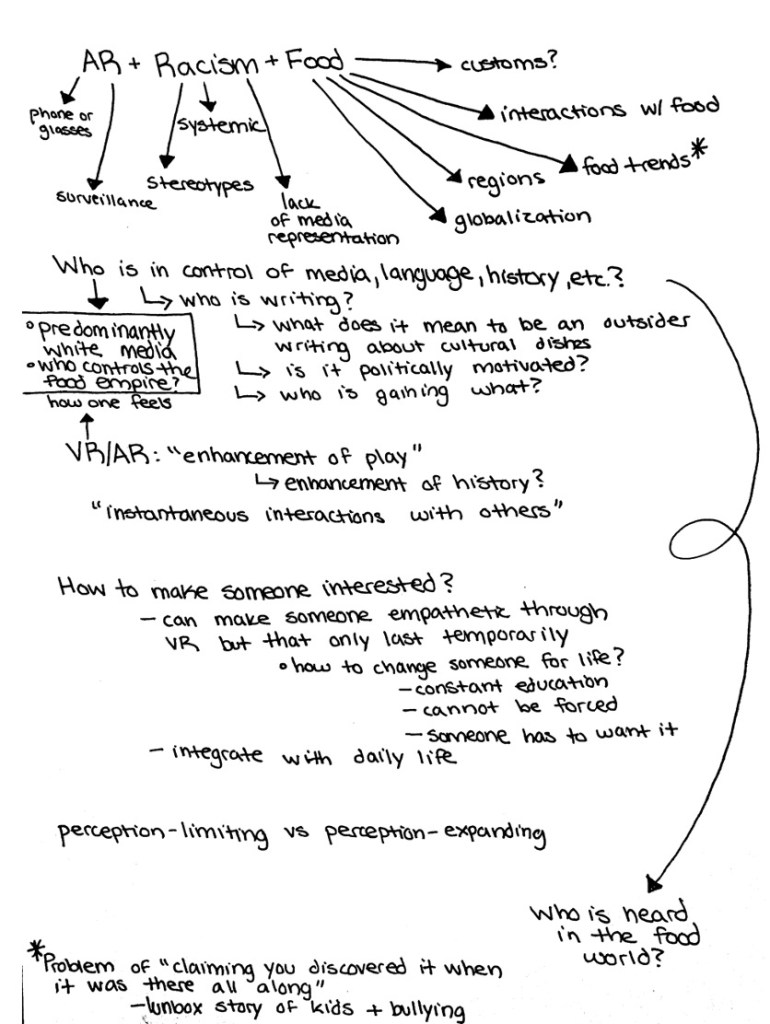 AR + Racism + Food
customs?
interactions w/ food
food trends*
regions
globalization
phone or
glasses
surveillance
systemic
stereotypes
lack
of media
representation
Who is in control of media, language, history, etc.?
who is writing?
what does it mean to be an outsider
writing about cultural dishes
is it politically motivated?
who is gaining what?
predominantly
white media
who controls the
food empire?
how one feels
VR/AR: "enhancement of play"
enhancement of history?
"instantaneous interactions with others"
How to make someone interested?
- can make someone empathetic through
VR but that only last temporarily
how to change someone for life?
- constant education
- cannot be forced
- someone has to want it
- integrate with daily life
perception-limiting vs perception-expanding
Who is heard
in the food
world?
*Problem of "claiming you discovered it when
it was there all along"
- lunbox story of kids + bullying